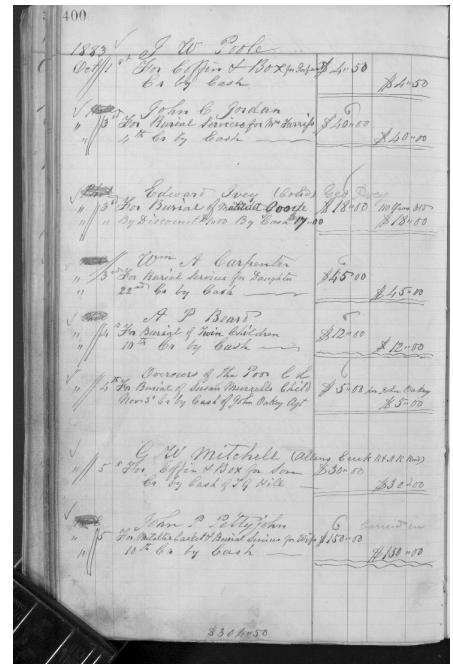 400
1883 J W Poole
Oct 1st For Coffin & Box for Infant $4.50
Cr by Cash $4.50
John C Jordan
" 3d For Burial Services for Mr Farriss $40.00
" 4th Cr by Cash $40.00
Edward Ivey (Cold) Geo Ivey
" 3d For Burial of $18.00
" " By Discount $1.00 By Cash $17.00 $18.00
Wm A Carpenter
" 3d For Burial Service for Daughter $45.00
" 22nd Cr by Cash $45.00
A P Beard
" 4th For Burial of Twin Children $12.00
" 10th Cr by Cash $12.00
Overseers of the Poor C L
" 4th For Burial of Susan Murrells Child $5.00 for John Oakey
Nov 3d Cr by Cash of John Oakey Agt $5.00
G W Mitchell (Allens Creek R & A R Road)
" 5th For Coffin & Box for Son $30.00
Cr by Cash of J G Hill $30.00
John P Pettyjohn carried on
" 5 For Metallic Casket & Burial Services for Wife $150.00
" 10th Cr by Cash $150.00
$304.50